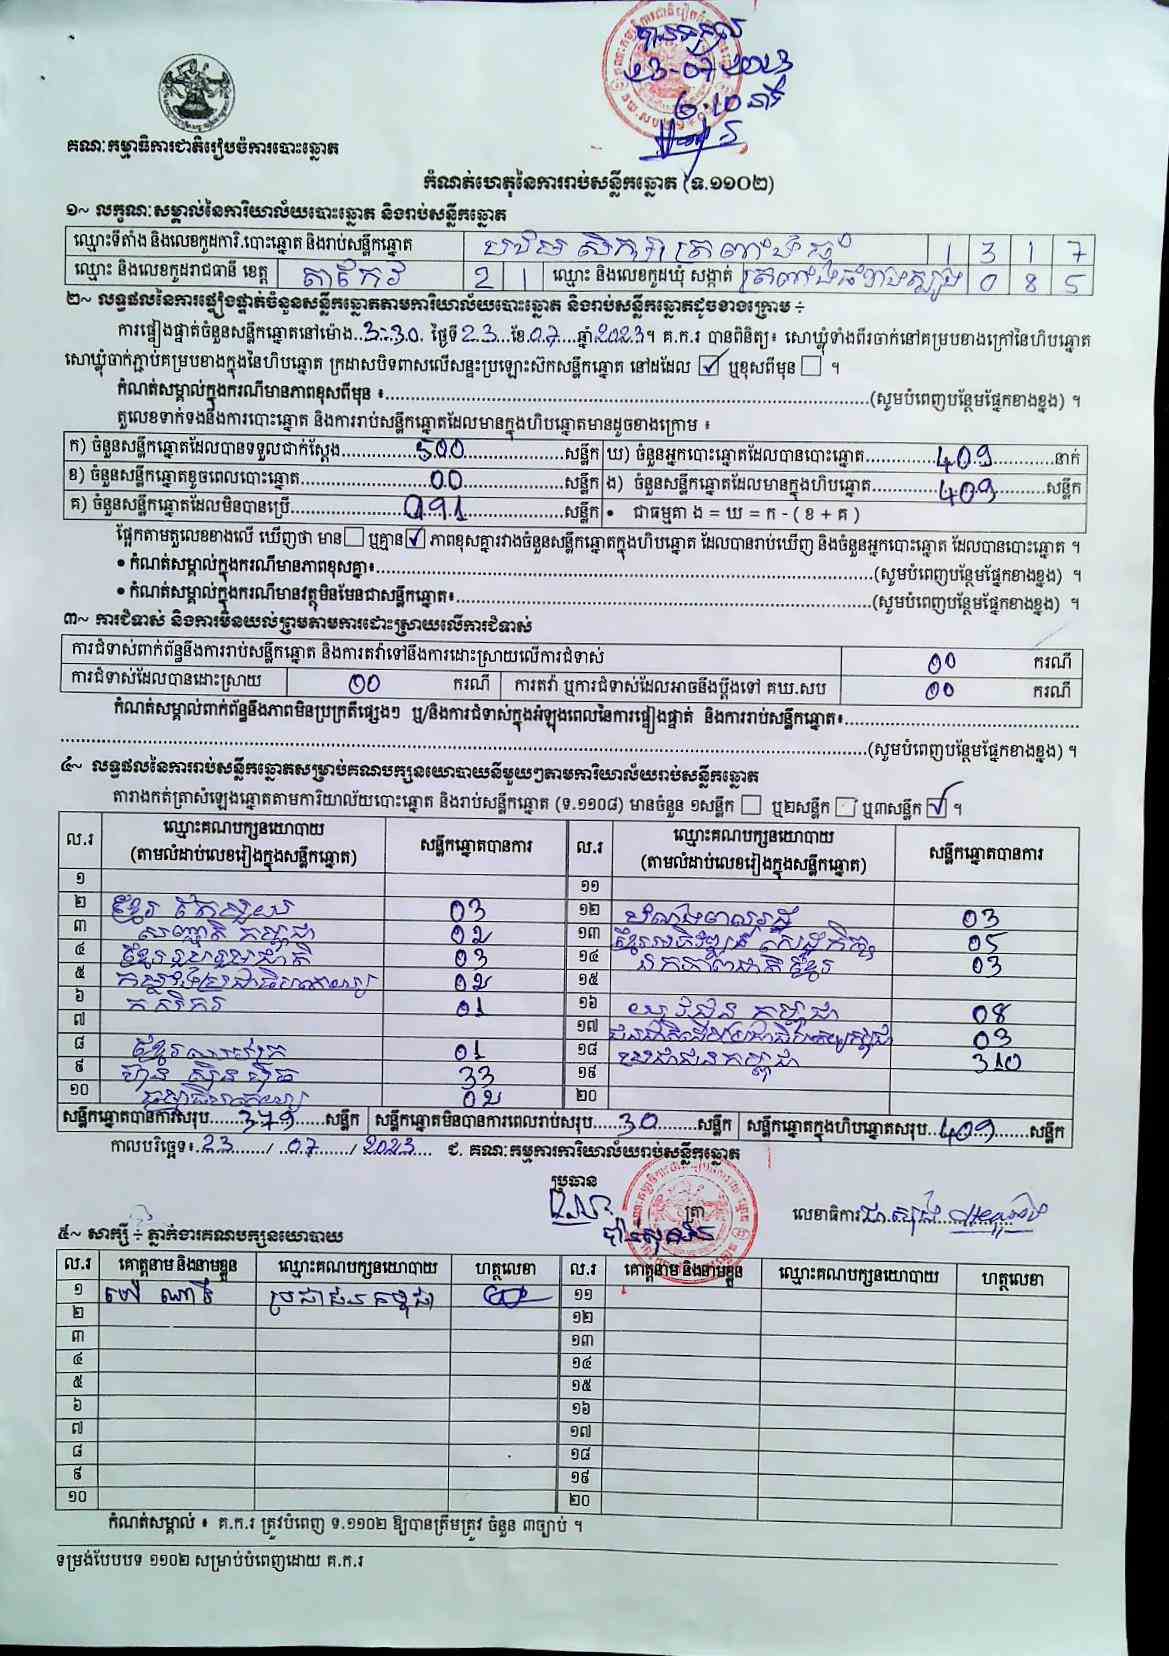 បានទទួល
23-07-2023
គណៈកម្មាធិការជាតិរៀបចំការបោះឆ្នោត
កំណត់ហេតុនៃការរាប់សន្លឹកឆ្នោត (ទ.១១០២)
១~ លក្ខណៈសម្គាល់នៃការិយាល័យបោះឆ្នោត និងរាប់សន្លឹកឆ្នោត
ឈ្មោះទីតាំង និងលេខកូដការិ.បោះឆ្នោត និងរាប់សន្លឹកឆ្នោត បឋមសិក្សា ត្រពាំងធំ 1 3 1 7
ឈ្មោះ និងលេខកូដរាជធានី ខេត្ត តាកែវ 2 1 ឈ្មោះ និងលេខកូដឃុំ សង្កាត់ 0 8 5
២~ លទ្ធផលនៃការផ្ទៀងផ្ទាត់ចំនួនសន្លឹកឆ្នោតតាមការិយាល័យបោះឆ្នោត និងរាប់សន្លឹកឆ្នោតដូចខាងក្រោម ÷
ការផ្ទៀងផ្ទាត់ចំនួនសន្លឹកឆ្នោតនៅម៉ោង..3:30. ថ្ងៃទី 23...ខែ.07....ឆ្នាំ 2023។ គ.ក.រ បានពិនិត្យ៖ សោឃ្លុំទាំងពីរចាក់នៅគម្របខាងក្រៅនៃហិបឆ្នោត
សោឃ្លុំចាក់ភ្ជាប់គម្របខាងក្នុងនៃហិបឆ្នោត ក្រដាសបិទពាសលើសន្ទះប្រឡោះស៊កសន្លឹកឆ្នោត នៅដដែល ☑ ឬខុសពីមុន ☐ ។
កំណត់សម្គាល់ក្នុងករណីមានភាពខុសពីមុន ៖..........(សូមបំពេញបន្ថែមផ្នែកខាងខ្នង) ។
តួលេខទាក់ទងនឹងការបោះឆ្នោត និងការរាប់សន្លឹកឆ្នោតដែលមានក្នុងហិបឆ្នោតមានដូចខាងក្រោម ៖
ក) ចំនួនសន្លឹកឆ្នោតដែលបានទទួលជាក់ស្ដែង......500......សន្លឹក ឃ) ចំនួនអ្នកបោះឆ្នោតដែលបានបោះឆ្នោត......409......នាក់
ខ) ចំនួនសន្លឹកឆ្នោតខូចពេលបោះឆ្នោត......00......សន្លឹក ង) ចំនួនសន្លឹកឆ្នោតដែលមានក្នុងហិបឆ្នោត......409......សន្លឹក
គ) ចំនួនសន្លឹកឆ្នោតដែលមិនបានប្រើ......091......សន្លឹក • ជាធម្មតា ង = ឃ = ក - ( ខ + គ )
ផ្អែកតាមតួលេខខាងលើ ឃើញថា មាន ☐ ឬគ្មាន ☑ ភាពខុសគ្នារវាងចំនួនសន្លឹកឆ្នោតក្នុងហិបឆ្នោត ដែលបានរាប់ឃើញ និងចំនួនអ្នកបោះឆ្នោត ដែលបានបោះឆ្នោត ។
• កំណត់សម្គាល់ក្នុងករណីមានភាពខុសគ្នា៖..........(សូមបំពេញបន្ថែមផ្នែកខាងខ្នង) ។
• កំណត់សម្គាល់ក្នុងករណីមានវត្ថុមិនមែនជាសន្លឹកឆ្នោត៖..........(សូមបំពេញបន្ថែមផ្នែកខាងខ្នង) ។
៣~ ការជំទាស់ និងការមិនយល់ព្រមតាមការដោះស្រាយលើការជំទាស់
ការជំទាស់ពាក់ព័ន្ធនឹងការរាប់សន្លឹកឆ្នោត និងការតវ៉ាទៅនឹងការដោះស្រាយលើការជំទាស់ 00 ករណី
ការជំទាស់ដែលបានដោះស្រាយ 00 ករណី ការតវ៉ា ឬការជំទាស់ដែលអាចនឹងប្ដឹងទៅ គឃ.សប 00 ករណី
កំណត់សម្គាល់ពាក់ព័ន្ធនឹងភាពមិនប្រក្រតីផ្សេងៗ ឬ/និងការជំទាស់ក្នុងអំឡុងពេលនៃការផ្ទៀងផ្ទាត់ និងការរាប់សន្លឹកឆ្នោត៖..........
..........(សូមបំពេញបន្ថែមផ្នែកខាងខ្នង) ។
៤~ លទ្ធផលនៃការរាប់សន្លឹកឆ្នោតសម្រាប់គណបក្សនយោបាយនីមួយៗតាមការិយាល័យរាប់សន្លឹកឆ្នោត
តារាងកត់ត្រាសំឡេងឆ្នោតតាមការិយាល័យបោះឆ្នោត និងរាប់សន្លឹកឆ្នោត (ទ.១១០៨) មានចំនួន ១សន្លឹក ☐ ឬ២សន្លឹក ☐ ឬ៣សន្លឹក ☑ ។
ល.រ ឈ្មោះគណបក្សនយោបាយ (តាមលំដាប់លេខរៀងក្នុងសន្លឹកឆ្នោត) សន្លឹកឆ្នោតបានការ ល.រ ឈ្មោះគណបក្សនយោបាយ (តាមលំដាប់លេខរៀងក្នុងសន្លឹកឆ្នោត) សន្លឹកឆ្នោតបានការ
១ ១១
២ ខ្មែរ 03 ១២ 03
៣ សញ្ជាតិ កម្ពុជា 02 ១៣ ខ្មែរអភិវឌ្ឍន៍ សេដ្ឋកិច្ច 05
៤ ខ្មែររួបរួមជាតិ 03 ១៤ ឯកភាពជាតិ ខ្មែរ 03
៥ 02 ១៥
៦ កសិករ 01 ១៦ យុវជន កម្ពុជា 08
៧ ១៧ 03
៨ 01 ១៨ ប្រជាជនកម្ពុជា 310
៩ ហ៊្វុនស៊ិនប៉ិច 33 ១៩
១០ ធម្មាធិបតេយ្យ 02 ២០
សន្លឹកឆ្នោតបានការសរុប......379......សន្លឹក សន្លឹកឆ្នោតមិនបានការពេលរាប់សរុប......30......សន្លឹក សន្លឹកឆ្នោតក្នុងហិបឆ្នោតសរុប..409......សន្លឹក
កាលបរិច្ឆេទ៖..23....../..07....../ 2023.... ជ. គណៈកម្មការការិយាល័យរាប់សន្លឹកឆ្នោត
ប្រធាន
ត្រា
លេខាធិការ
៥~ សាក្សី ÷ ភ្នាក់ងារគណបក្សនយោបាយ
ល.រ គោត្តនាម និងនាមខ្លួន ឈ្មោះគណបក្សនយោបាយ ហត្ថលេខា ល.រ គោត្តនាម និងនាមខ្លួន ឈ្មោះគណបក្សនយោបាយ ហត្ថលេខា
១ ប្រជាជនកម្ពុជា ១១
២ ១២
៣ ១៣
៤ ១៤
៥ ១៥
៦ ១៦
៧ ១៧
៨ ១៨
៩ ១៩
១០ ២០
កំណត់សម្គាល់ ៖ គ.ក.រ ត្រូវបំពេញ ទ.១១០២ ឱ្យបានត្រឹមត្រូវ ចំនួន ៣ច្បាប់ ។
ទម្រង់បែបបទ ១១០២ សម្រាប់បំពេញដោយ គ.ក.រ